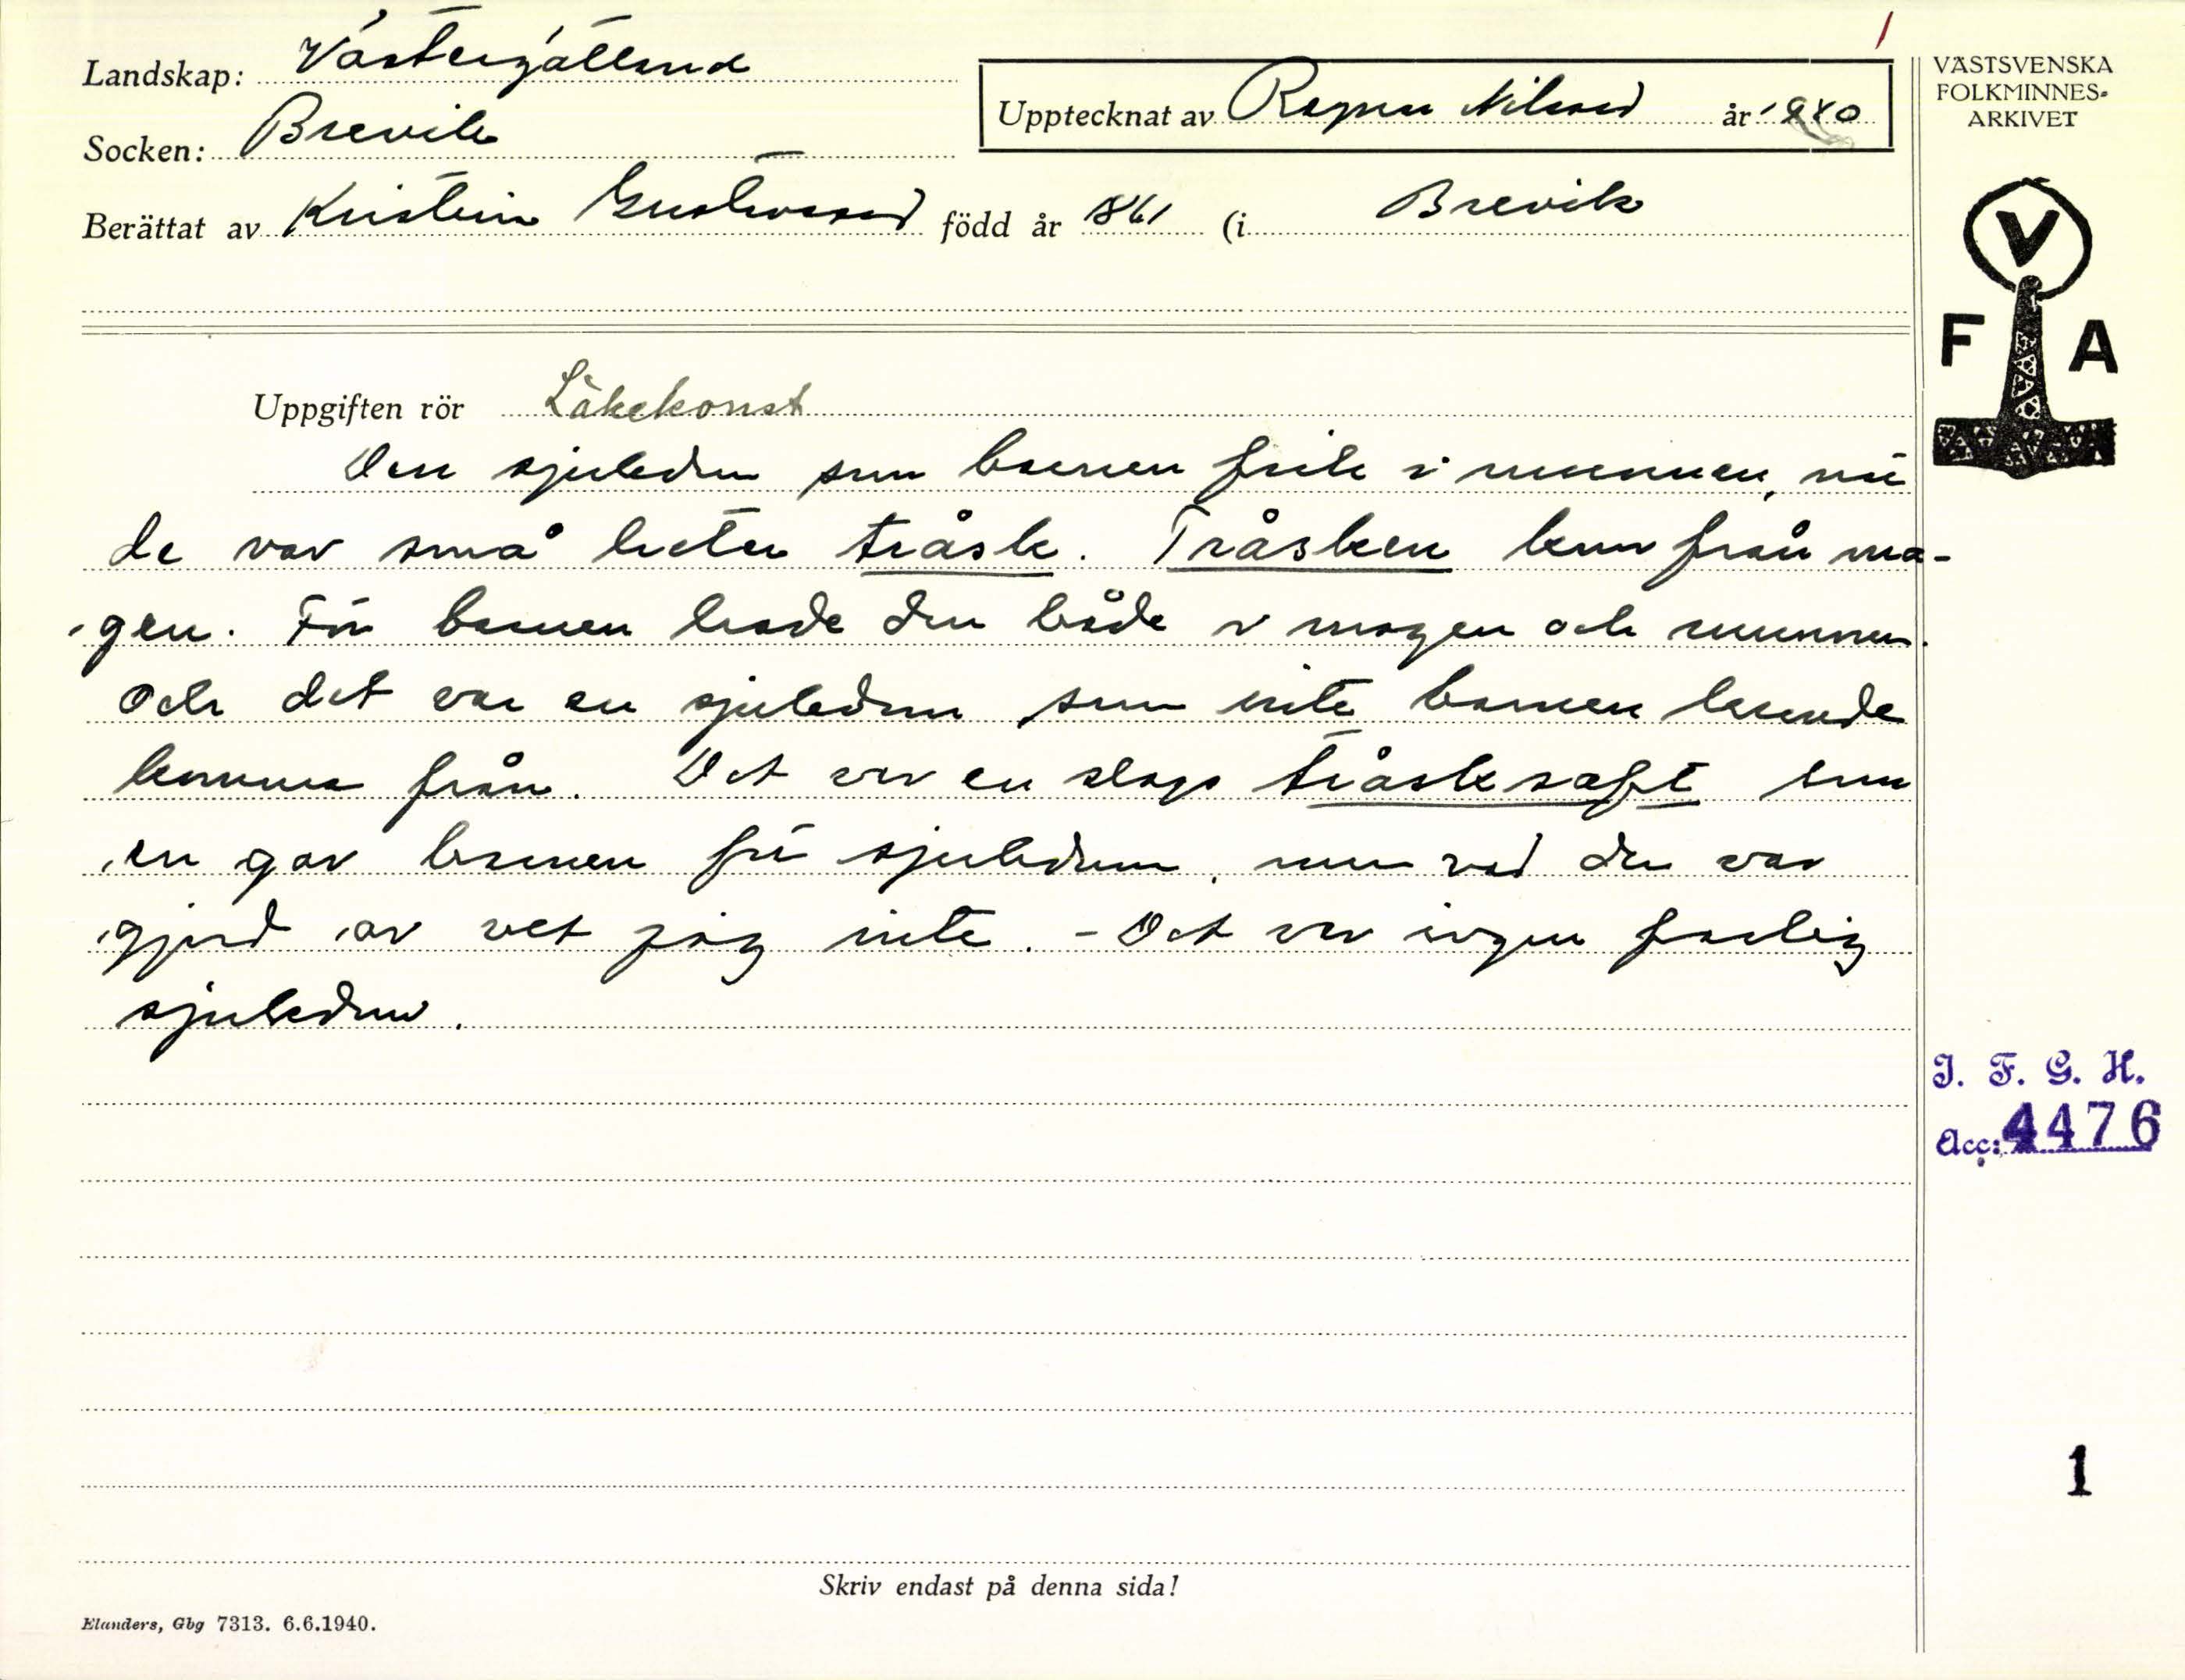 Landskap: Västergötland
Upptecknat av Ragnar Nilsson år 1940
Socken: Brevik
Berättat av Kristin Gustavsson född år 1861 (i Brevik
VÄSTSVENSKA
FOLKMINNES-
ARKIVET
V
F A
Uppgiften rör Läkekonst
Den sjukdom som barnen fick i munnen, när
de var små heter tråsk. Tråsken kom från ma-
gen. För barnen hade den både i magen och munnen.
Och det var en sjukdom som inte barnen kunde
komma från. Det var en slags tråsksaft som
en gav barnen för sjukdom, men vad den var
gjord av vet jag inte. - Det var ingen farlig
sjukdom.
I. F. G. H.
Acc: 4476
1
Skriv endast på denna sida!
Elanders, Gbg 7313. 6.6.1940.